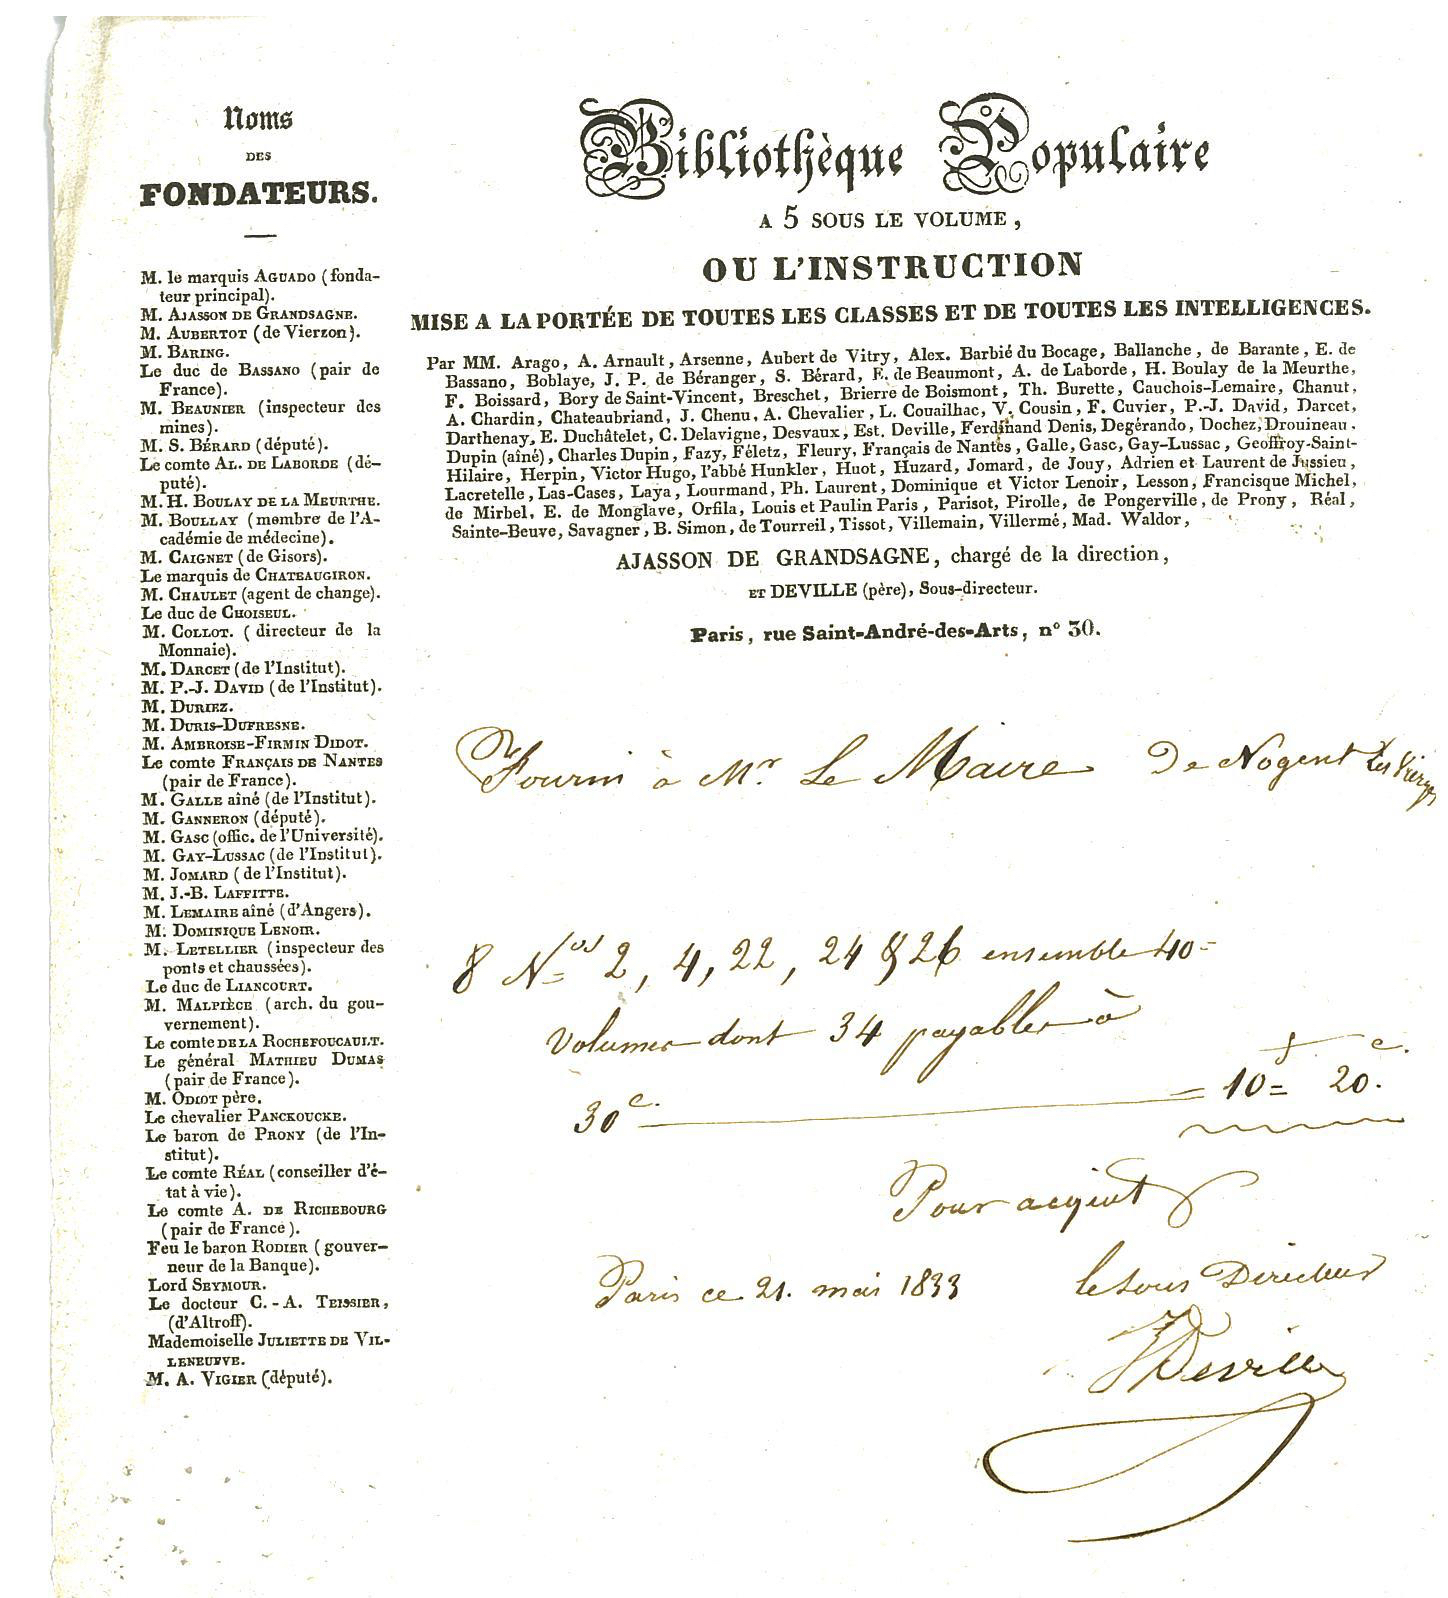 Noms
DES
FONDATEURS.
M. le marquis AGUADO (fonda-
teur principal).
M. AJASSON DE GRANDSAGNE.
M. AUBERTOT (de Vierzon).
M. BARING.
Le duc de BASSANO (pair de
France).
M. BEAUNIER (inspecteur des
mines).
M. S. BÉRARD (député).
Le comte AL. DE LABORDE (dé-
puté).
M. H. BOULAY DE LA MEURTHE.
M. BOULLAY (membre de l'A-
cadémie de médecine).
M. CAIGNET (de Gisors).
Le marquis de CHATEAUGIRON.
M. CHAULET (agent de change).
Le duc de CHOISEUL.
M. COLLOT. (directeur de la
Monnaie).
M. DARCET (de l'Institut).
M. P.-J. DAVID (de l'Institut).
M. DURIEZ.
M. DURIS-DUFRESNE.
M. AMBROISE-FIRMIN DIDOT.
Le comte FRANÇAIS DE NANTES
(pair de France).
M. GALLE aîné (de l'Institut).
M. GANNERON (député).
M. GASC (offic. de l'Université).
M. GAY-LUSSAC (de l'Institut).
M. JOMARD (de l'Institut).
M. J.-B. LAFFITTE.
M. LEMAIRE aîné (d'Angers).
M. DOMINIQUE LENOIR.
M. LETELLIER (inspecteur des
ponts et chaussées).
Le duc de LIANCOURT.
M. MALPIÈCE (arch. du gou-
vernement).
Le comte DE LA ROCHEFOUCAULT.
Le général MATHIEU DUMAS
(pair de France).
M. ODIOT père.
Le chevalier PANCKOUCKE.
Le baron de PRONY (de l'In-
stitut).
Le comte RÉAL (conseiller d'é-
tat à vie).
Le comte A. DE RICHEBOURG
(pair de France).
Feu le baron RODIER (gouver-
neur de la Banque).
Lord SEYMOUR.
Le docteur C.-A. TEISSIER,
(d'Altroff).
Mademoiselle JULIETTE DE VIL-
LENEUFVE.
M. A. VIGIER (député).
Bibliothèque Populaire
A 5 SOUS LE VOLUME,
OU L'INSTRUCTION
MISE A LA PORTÉE DE TOUTES LES CLASSES ET DE TOUTES LES INTELLIGENCES.
Par MM. Arago, A. Arnault, Arsenne, Aubert de Vitry, Alex. Barbié du Bocage, Ballanche, de Barante, E. de
Bassano, Boblaye, J. P. de Béranger, S. Bérard, E. de Beaumont, A. de Laborde, H. Boulay de la Meurthe,
F. Boissard, Bory de Saint-Vincent, Breschet, Brierre de Boismont, Th. Burette, Cauchois-Lemaire, Chanut,
A. Chardin, Chateaubriand, J. Chenu, A. Chevalier, L. Couailhac, V. Cousin, F. Cuvier, P.-J. David, Darcet,
Darthenay, E. Duchâtelet, C. Delavigne, Desvaux, Est. Deville, Ferdinand Denis, Degérando, Dochez, Drouineau,
Dupin (aîné), Charles Dupin, Fazy, Féletz, Fleury, Français de Nantes, Galle, Gasc, Gay-Lussac, Geoffroy-Saint-
Hilaire, Herpin, Victor Hugo, l'abbé Hunkler, Huot, Huzard, Jomard, de Jouy, Adrien et Laurent de Jussieu,
Lacretelle, Las-Cases, Laya, Lourmand, Ph. Laurent, Dominique et Victor Lenoir, Lesson, Francisque Michel,
de Mirbel, E. de Monglave, Orfila, Louis et Paulin Paris, Parisot, Pirolle, de Pongerville, de Prony, Réal,
Sainte-Beuve, Savagner, B. Simon, de Tourreil, Tissot, Villemain, Villermé, Mad. Waldor,
AJASSON DE GRANDSAGNE, chargé de la direction,
ET DEVILLE (père), Sous-directeur.
Paris, rue Saint-André-des-Arts, n° 30.
Fourni à Mr. Le Maire De Nogent Les Vierges
8 Nos 2, 4, 22, 24 & 26 ensemble 40=
volumes dont 34 payables à
30 c. = 10 f = 20 c.
Pour acquit
Paris ce 21. mai 1833 le sous Directeur
Deville